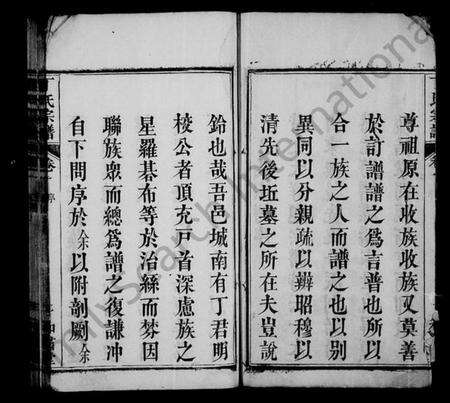 尊祖原在收族收族又莫善
於訂譜譜之為言普也所以
合一族之人而譜之也以别
異同以分親疏以辨昭穆以
清先後坵墓之所在夫豈説
鈴也哉吾邑城南有丁君明
棱公者頂充戸首深慮族之
星羅碁布等於治絲而棼因
聯族衆而總為譜之復謙冲
自下問序於余以附剞劂余
氏宗譜
FamilySearch International